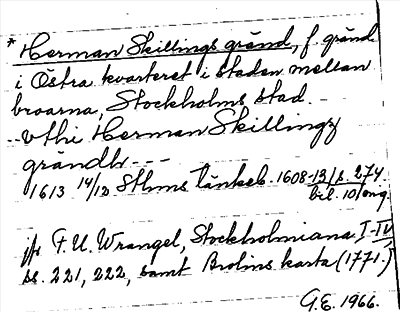 * Herman Skillings gränd, f. gränd
i Östra kvarteret i staden mellan
broarna, Stockholms stad.
- - vthi Herman Skillingz
grändh - - -
1613 14/12 Sthms tänkeb. 1608-13/s. 274
bil. 10/ong
jfr F. U. Wrangel, Stockholmiana I-IV
ss. 221, 222, samt Brolins karta (1771.)
G.E. 1966.